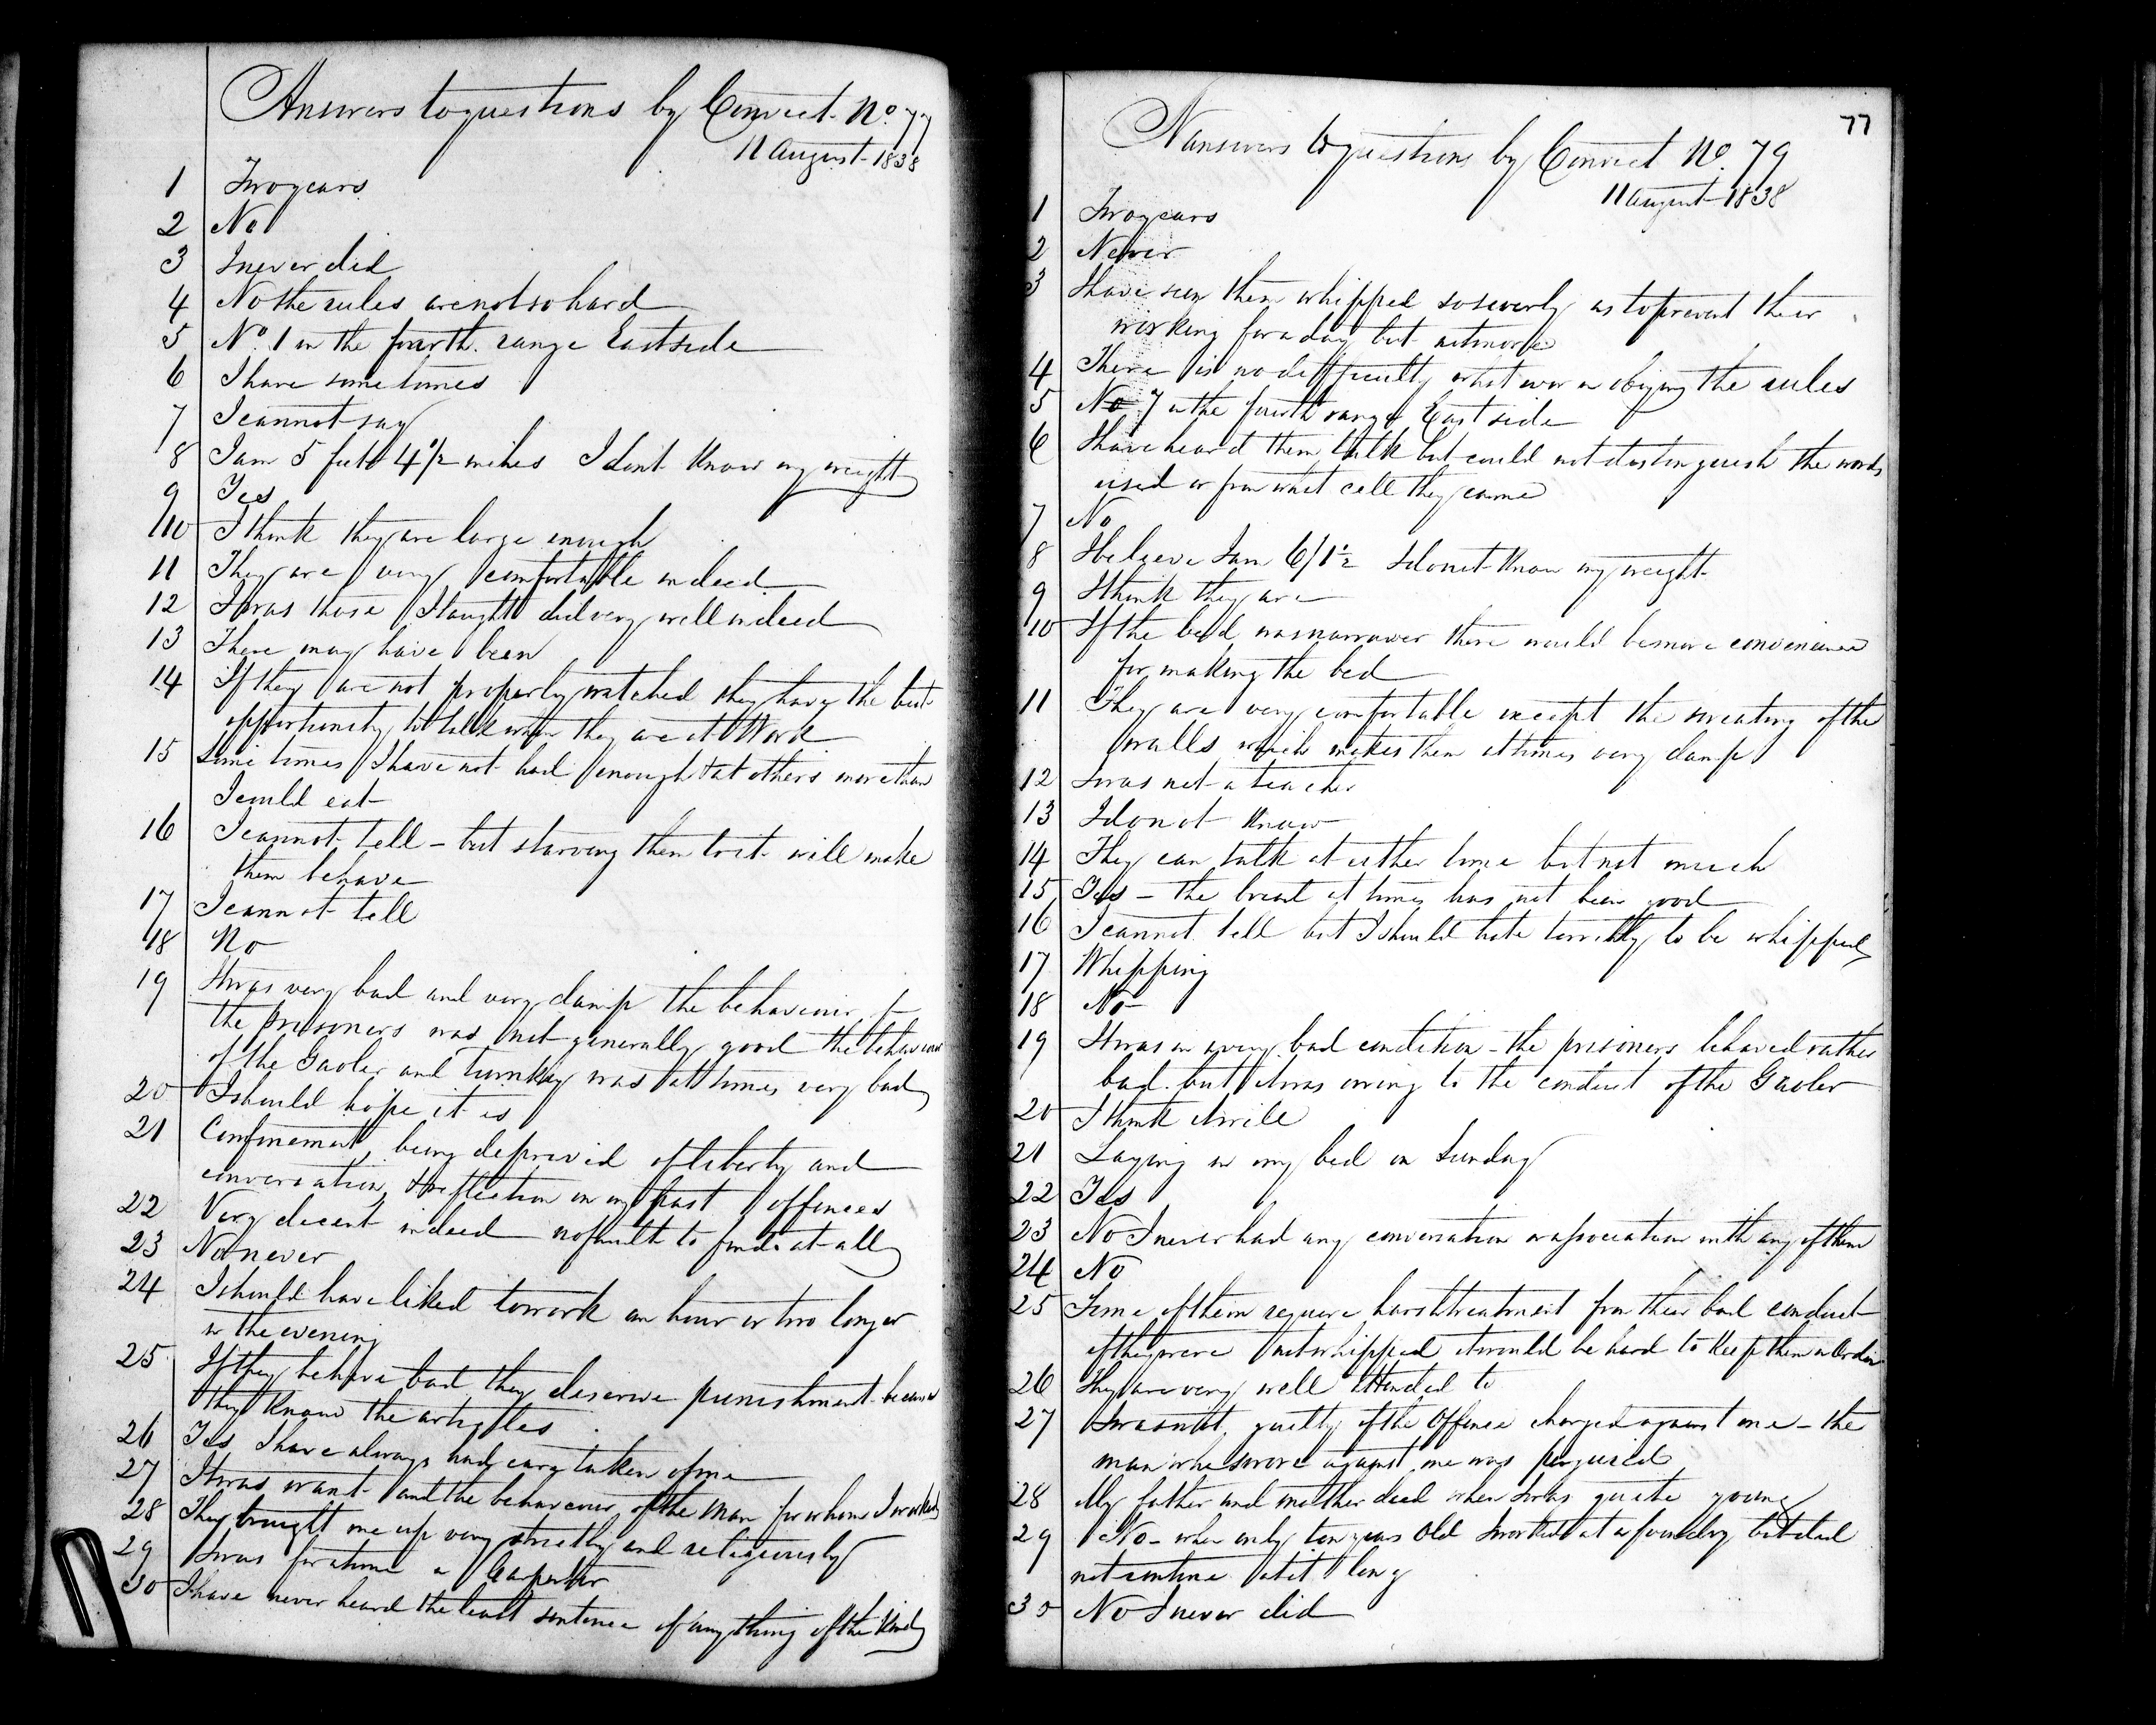 Answers to questions by Convict No. 77
11 August 1838
1 Two years
2 No
3 I never did
4 No the rules are not so hard
5 No. 1 in the fourth range East side
6 I have sometimes
7 I cannot say
8 I am 5 feet 4 1/2 inches I dont know my weight
9 Yes
10 I think they are large enough
11 They are very comfortable indeed
12 I was those I taught did very well indeed
13 There may have been
14 If they are not properly watched they have the best
opportunity to talk when they are at Work
15 Some times I have not had enough & at others more than
I could eat
16 I cannot tell - but starving them to it will make
them behave
17 I cannot tell
18 No
19 It was very bad and very damp the behaviour of
the prisoners was not generally good the behaviour
of the Gaoler and turnkey was at times very bad
20 I should hope it is
21 Confinement, being deprived of liberty and
conversation, & reflection on my past offences
22 Very decent indeed no fault to find at all
23 No never
24 I should have liked to work an hour or two longer
in the evening
25 If they behave bad they deserve punishment because
they know the articles
26 Yes I have always had care taken of me
27 It was want and the behaviour of the man for whom I worked
28 They brought me up very strictly and religiously
29 I was for a time a Carpenter
30 I have never heard the least sentence of any thing of the kind
77
Nanswers to questions by Convict No. 79
11 August 1838
1 Two years
2 Never
3 I have seen them whipped so severly as to prevent their
working for a day but not more
4 There is no difficulty what ever in obeying the rules
5 No 7 in the fourth range East side
6 I have heard them talk but could not distinguish the words
used or from what cell they came
7 No
8 I beleeve I am 6/1 1/2 I do not know my weight
9 I think they are
10 If the bed was narrower there would be more convenience
for making the bed
11 They are very comfortable except the sweating of the
walls which makes them at times very damp
12 I was not a teacher
13 I do not know
14 They can talk at either time but not much
15 Yes - the bread at times has not been good
16 I cannot tell but I should hate terribly to be whipped
17 Whipping
18 No
19 It was in a very bad condition - the prisoners behaved rather
bad but it was owing to the conduct of the Gaoler
20 I think it will
21 Laying in my bed on Sunday
22 Yes
23 No I never had any conversation or association with any of them
24 No
25 Some of them require harsh treatment from their bad conduct
if they were not whipped it would be hard to keep them in Order
26 They are very well attended to
27 I was not guilty of the Offence charged against me - the
man who swore against me was perjured
28 My father and mother died when I was quite young
29 No - when only ten years Old I worked at a foundry but did
not continue at it long
30 No I never did